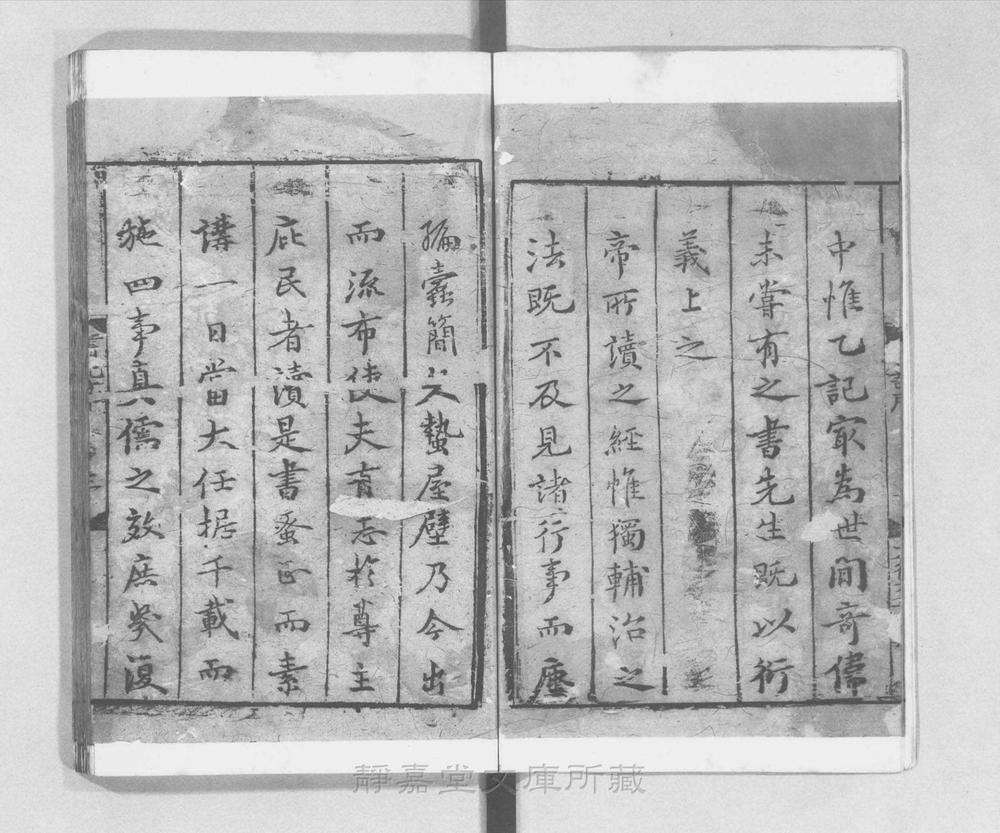 中惟乙記家為世間奇偉
未嘗有之書先生既以衍
義上之
帝所讀之經惟獨輔治之
法既不及見諸行事而塵
編蠹簡又蟄屋壁乃今出
而流布使夫有志於尊主
庇民者讀是書蚤正而素
講一日當大任据千載而
施四事真儒之效庶幾復
靜嘉堂文庫所藏